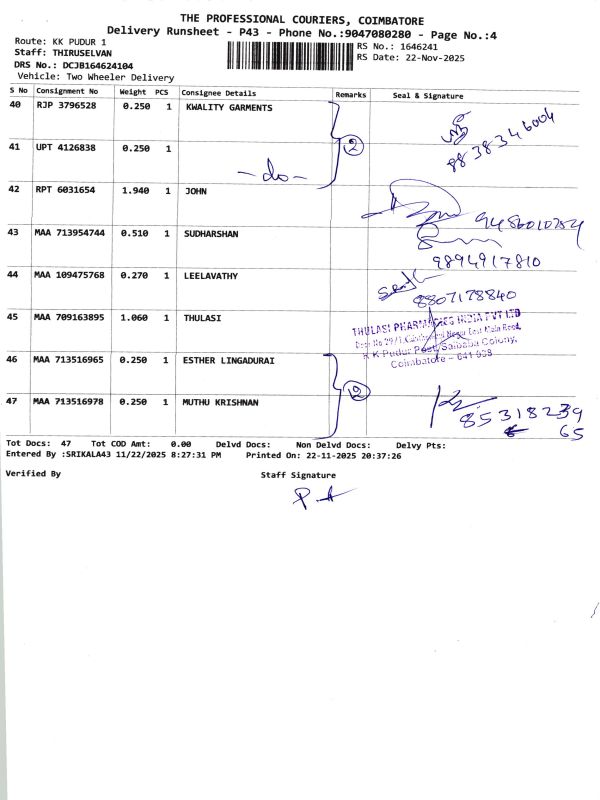 THE PROFESSIONAL COURIERS, COIMBATORE
Delivery Runsheet - P43 - Phone No.:9047080280 - Page No.:4
Route: KK PUDUR 1
RS No.: 1646241
Staff: THIRUSELVAN
RS Date: 22-Nov-2025
DRS No.: DCJB164624104
Vehicle: Two Wheeler Delivery
S No Consignment No Weight PCS Consignee Details Remarks Seal & Signature
40 RJP 3796528 0.250 1 KWALITY GARMENTS
8838346004
41 UPT 4126838 0.250 1
2
-do-
42 RPT 6031654 1.940 1 JOHN
9486010254
43 MAA 713954744 0.510 1 SUDHARSHAN
9894917810
44 MAA 109475768 0.270 1 LEELAVATHY
8807178840
45 MAA 709163895 1.060 1 THULASI
THULASI PHARMACIES INDIA PVT LTD
East Main Road,
K K Pudur Post, Saibaba Colony,
Coimbatore - 641 038
46 MAA 713516965 0.250 1 ESTHER LINGADURAI
2
47 MAA 713516978 0.250 1 MUTHU KRISHNAN
85318239
65
Tot Docs: 47 Tot COD Amt: 0.00 Delvd Docs: Non Delvd Docs: Delvy Pts:
Entered By :SRIKALA43 11/22/2025 8:27:31 PM Printed On: 22-11-2025 20:37:26
Verified By Staff Signature